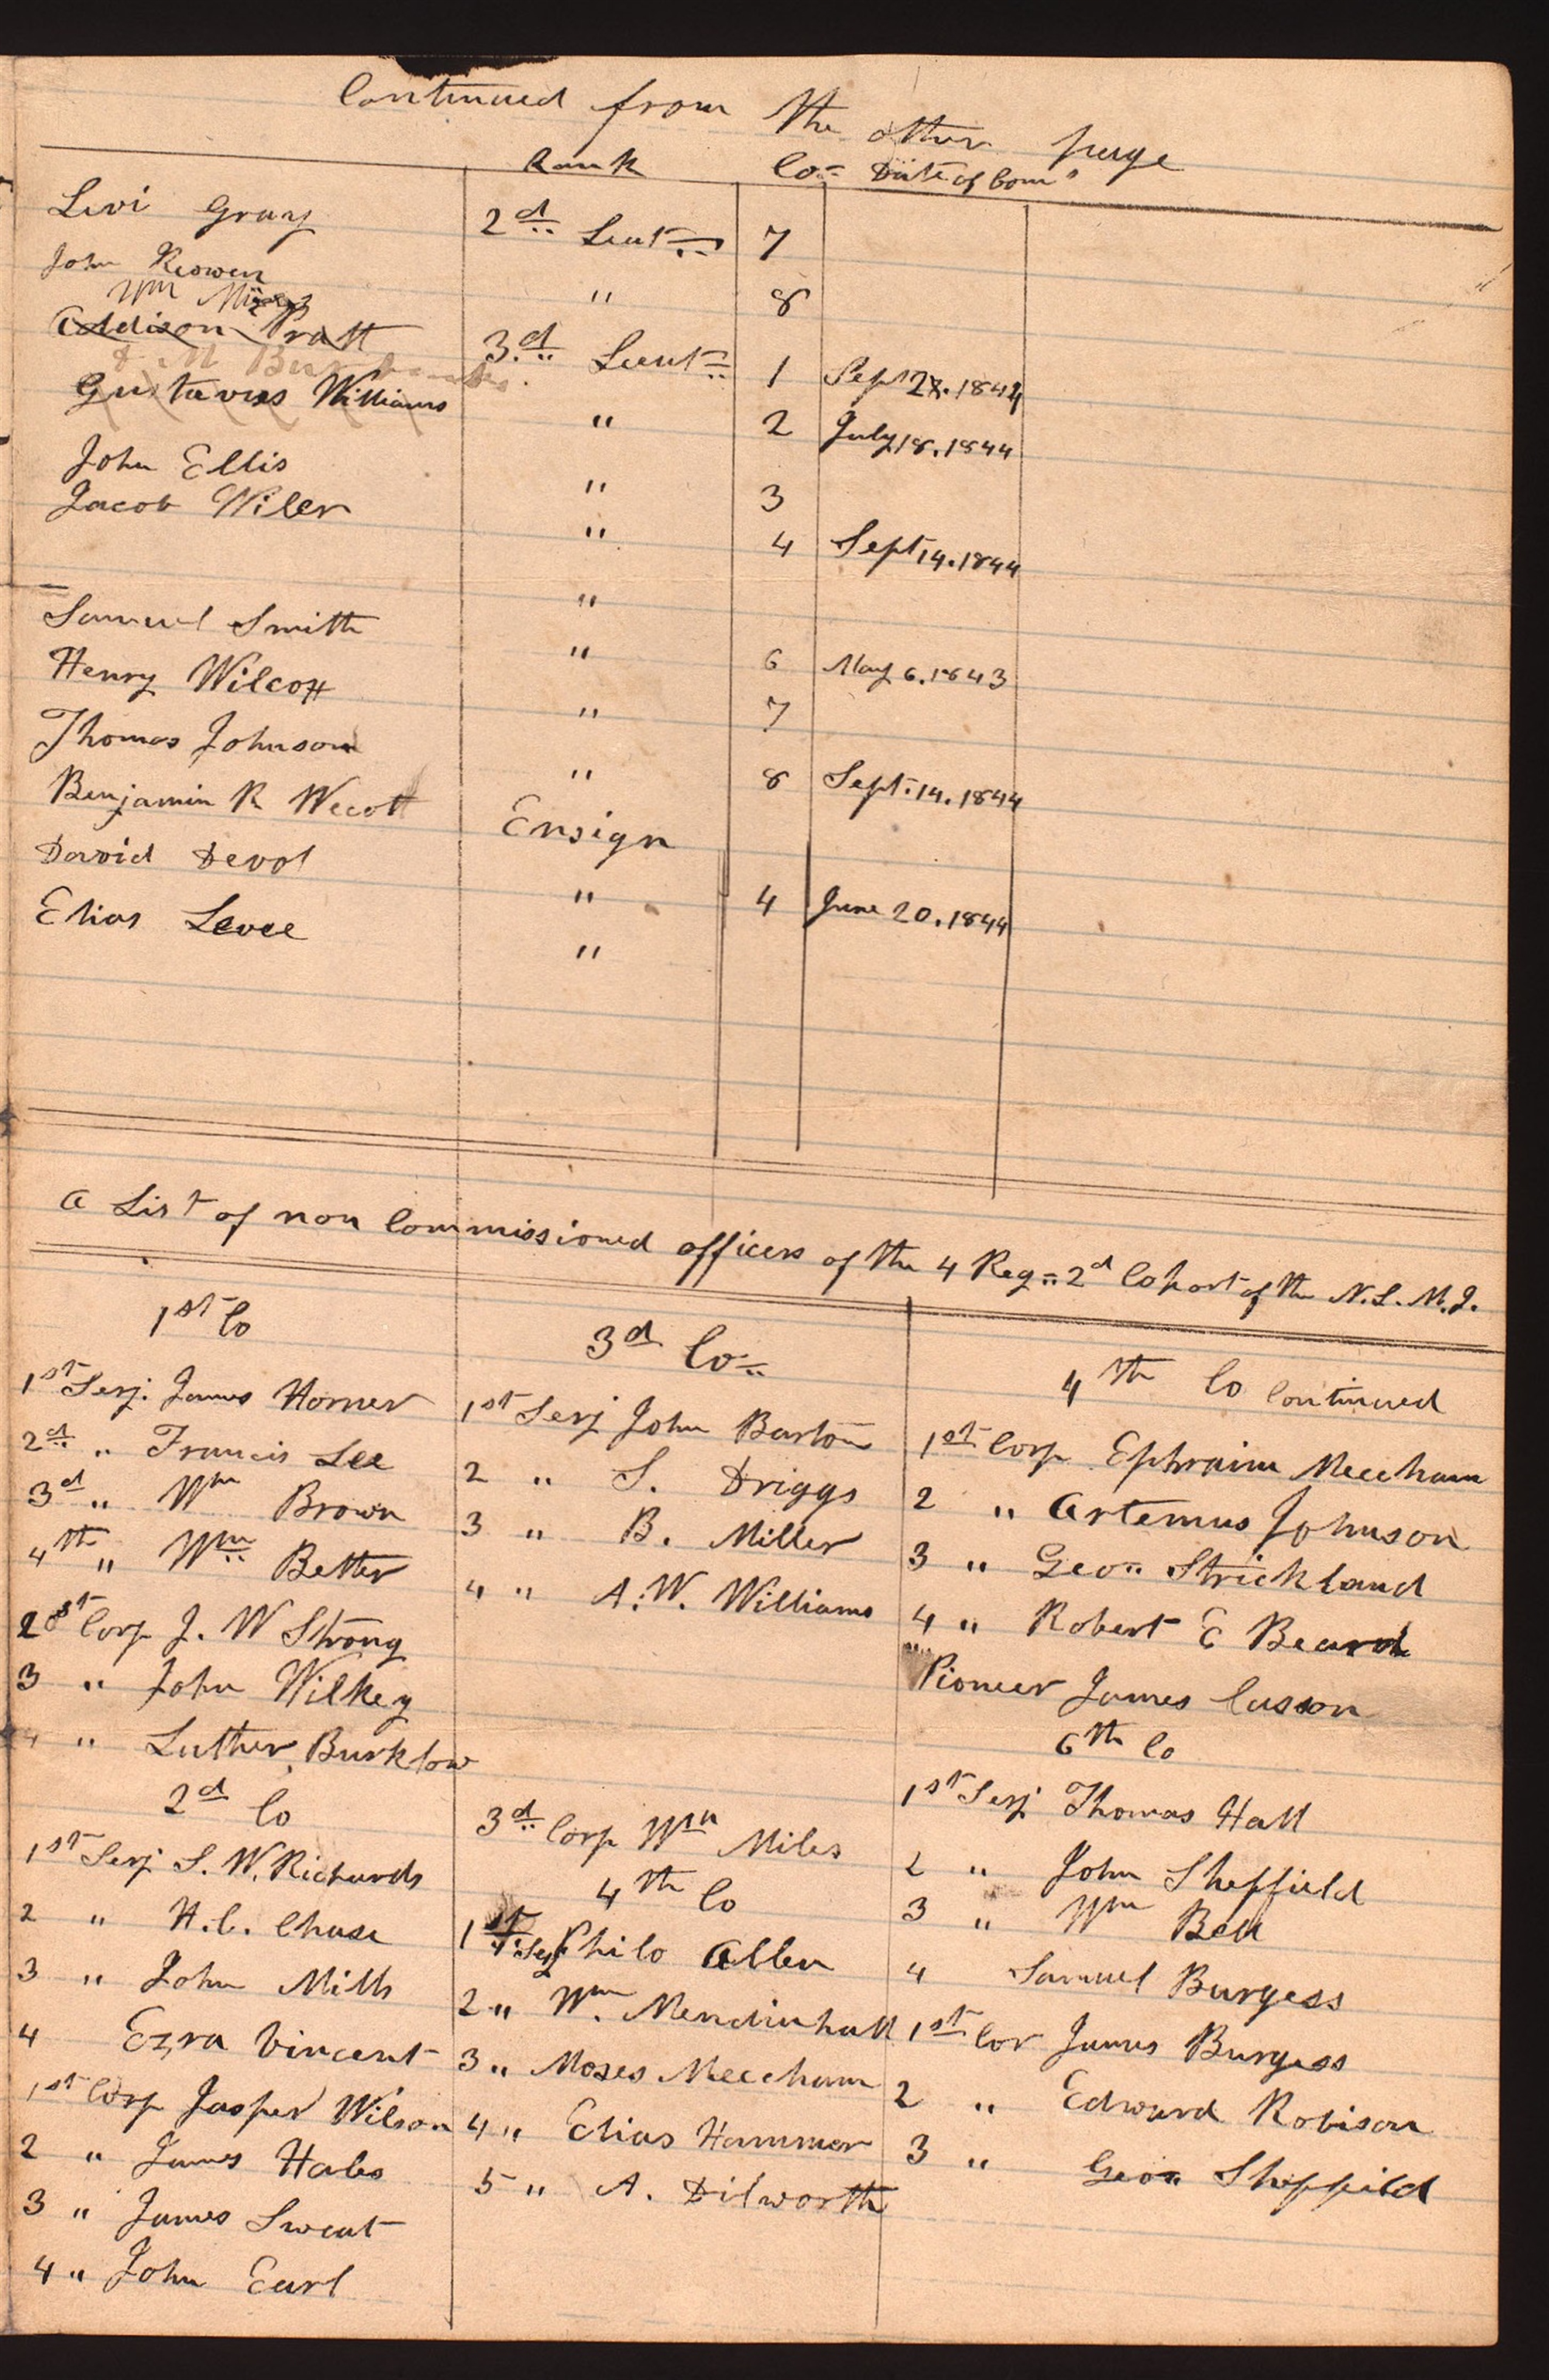 Continued from the other page
Rank Co= Date of Com s
Levi Gray 2d Leut 7
John Keowen " 8
Wm
Addison Pratt 3.d Lieut 1 Sept 27. 1844
Gustavus Williams " 2 July 18. 1844
John Ellis " 3
Jacob Wiler " 4 Sept 14. 1844
"
Samuel Smith " 6 May 6. 1843
Henry Wilcox " 7
Thomas Johnson " 8 Sept. 14. 1844
Benjamin R Wecott Ensign
David Devol " 4 June 20. 1844
Elias Levee "
A List of non Commissioned officers of the 4 Reg= 2d Cohort of the N. L. M. I.
1st Co
1st Serj. James Horner
2d " Francis Lee
3d " Wm Brown
4th " Wm Better
2 Corp J. W Strong
3 " John Wilkey
4 " Luther Burklow
2d Co
1st Serj S. W. Richards
2 " H. C. Chase
3 " John Mills
4 Ezra Vincent
1st Corp Jasper Wilson
2 " James Hales
3 " James Sweat
4 " John Earl
3d Co=
1st Serj John Barton
2 " S. Driggs
3 " B. Miller
4 " A. W. Williams
3d Corp Wm Miles
4th Co
1st Serj Philo Allen
2 " Wm. Mendinhall
3 " Moses Meecham
4 " Elias Hammer
5 " A. Dilworth
4th Co Continued
1st Corp Ephraim Meecham
2 " Artemus Johnson
3 " Geo= Strickland
4 " Robert E Beard
Pioneer James Casson
6th Co
1st Serj Thomas Hall
2 " John Sheffield
3 " Wm Bell
4 Samuel Burgess
1st Cor James Burgess
2 " Edward Robison
3 " Geo= Sheffield